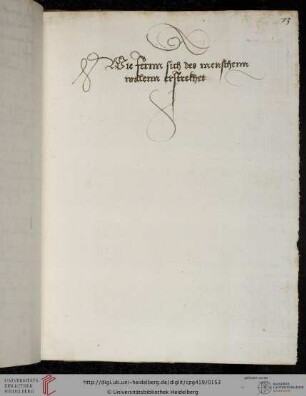 73
Wie ferrnn sich des menschenn
willenn erstrekhet
UNIVERSITÄTS-
BIBLIOTHEK
HEIDELBERG
http://digi.ub.uni-heidelberg.de/diglit/cpg419/0153
© Universitätsbibliothek Heidelberg